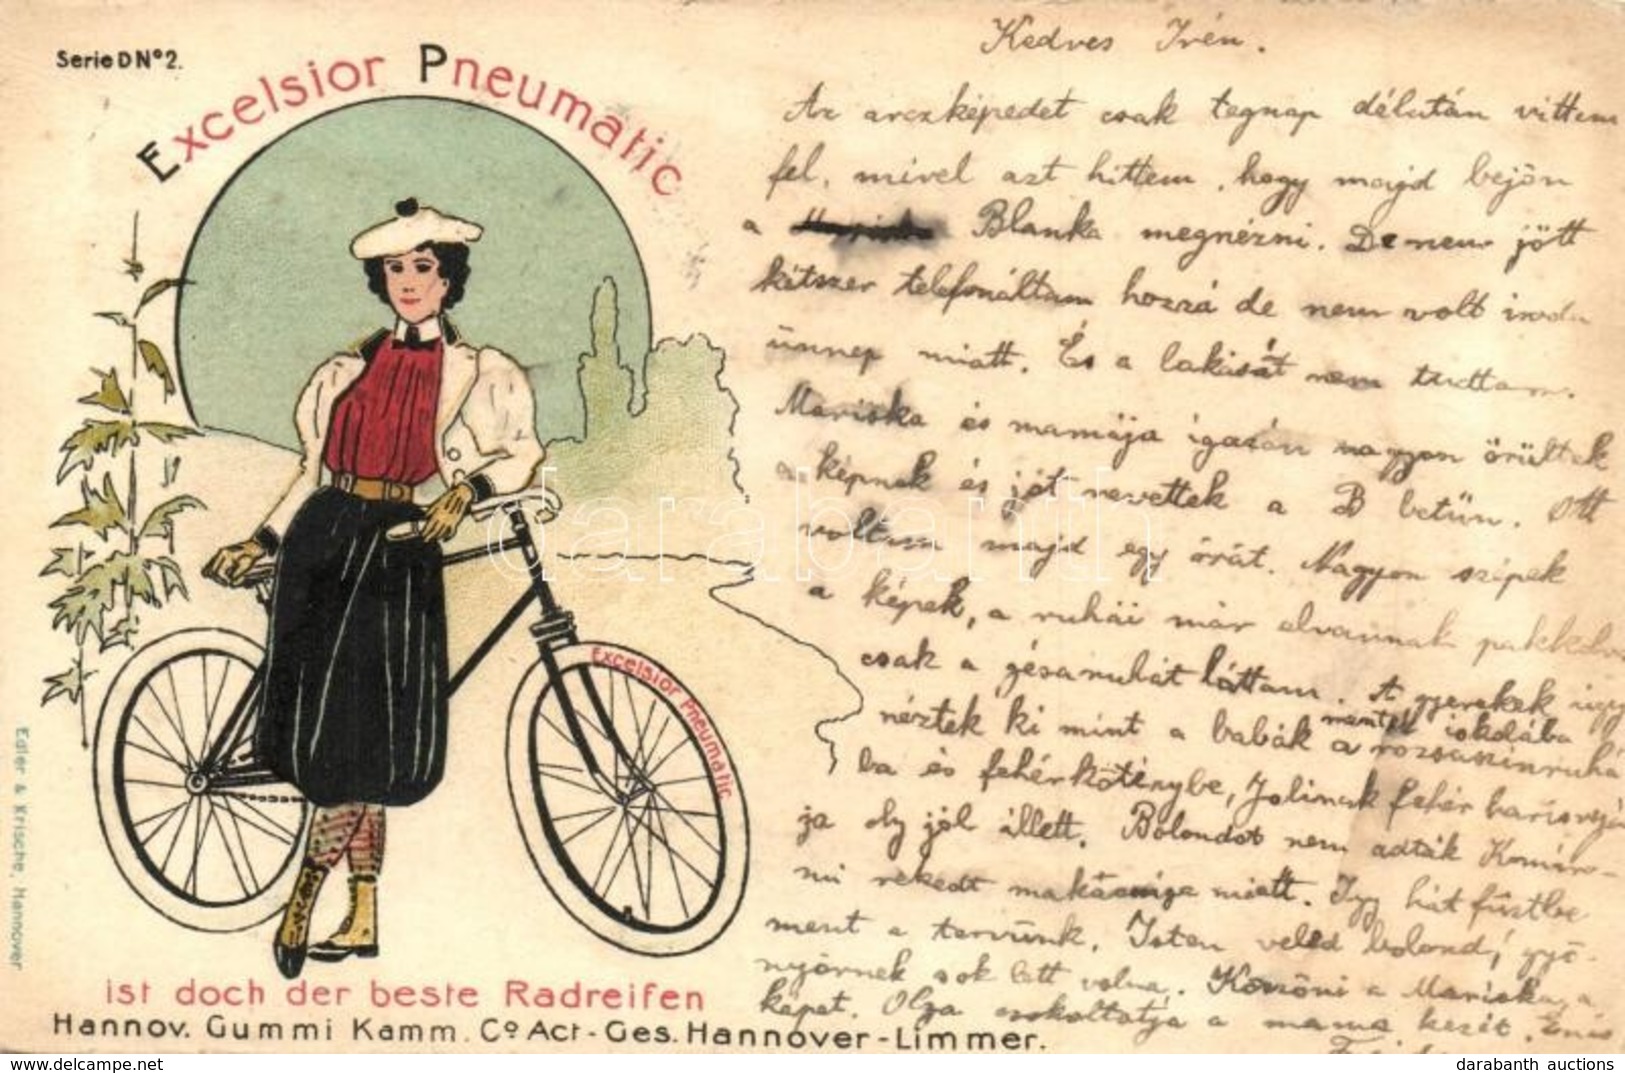 Serie D Nº 2.
Excelsior Pneumatic
Excelsior Pneumatic
ist doch der beste Radreifen
Hannov. Gummi Kamm. Cº Act-Ges. Hannover-Limmer.
Edler & Krische, Hannover
Kedves Irén.
Az arczképedet csak tegnap délután vittem
fel, mivel azt hittem, hogy majd bejön
a Blanka megnézni. De nem jött
kétszer telefonáltam hozzá de nem volt iroda
ünnep miatt. És a lakását nem tudtam.
Mariska és mamája igazán nagyon örültek
a képnek és jót nevettek a B betün. Ott
voltam majd egy órát. Nagyon szépek
a képek, a ruhái már elvannak pakkolva
csak a gésaruhát láttam. A gyerekek úgy
néztek ki mint a babák mentek iskolába a rozsaszinruhá
ba és fehérköténybe, Jolinak fehér harisnyá
ja oly jól illett. Bolondot nem adták Komáro-
mi rekedt miatt. Igy hát füstbe
ment a tervünk. Isten veled bolond, gyö-
nyörnek sok lett volna. Köszöni a Mariska a
képet. Olga csokoltatja a mama kezét.
darabanth
darabanth auctions